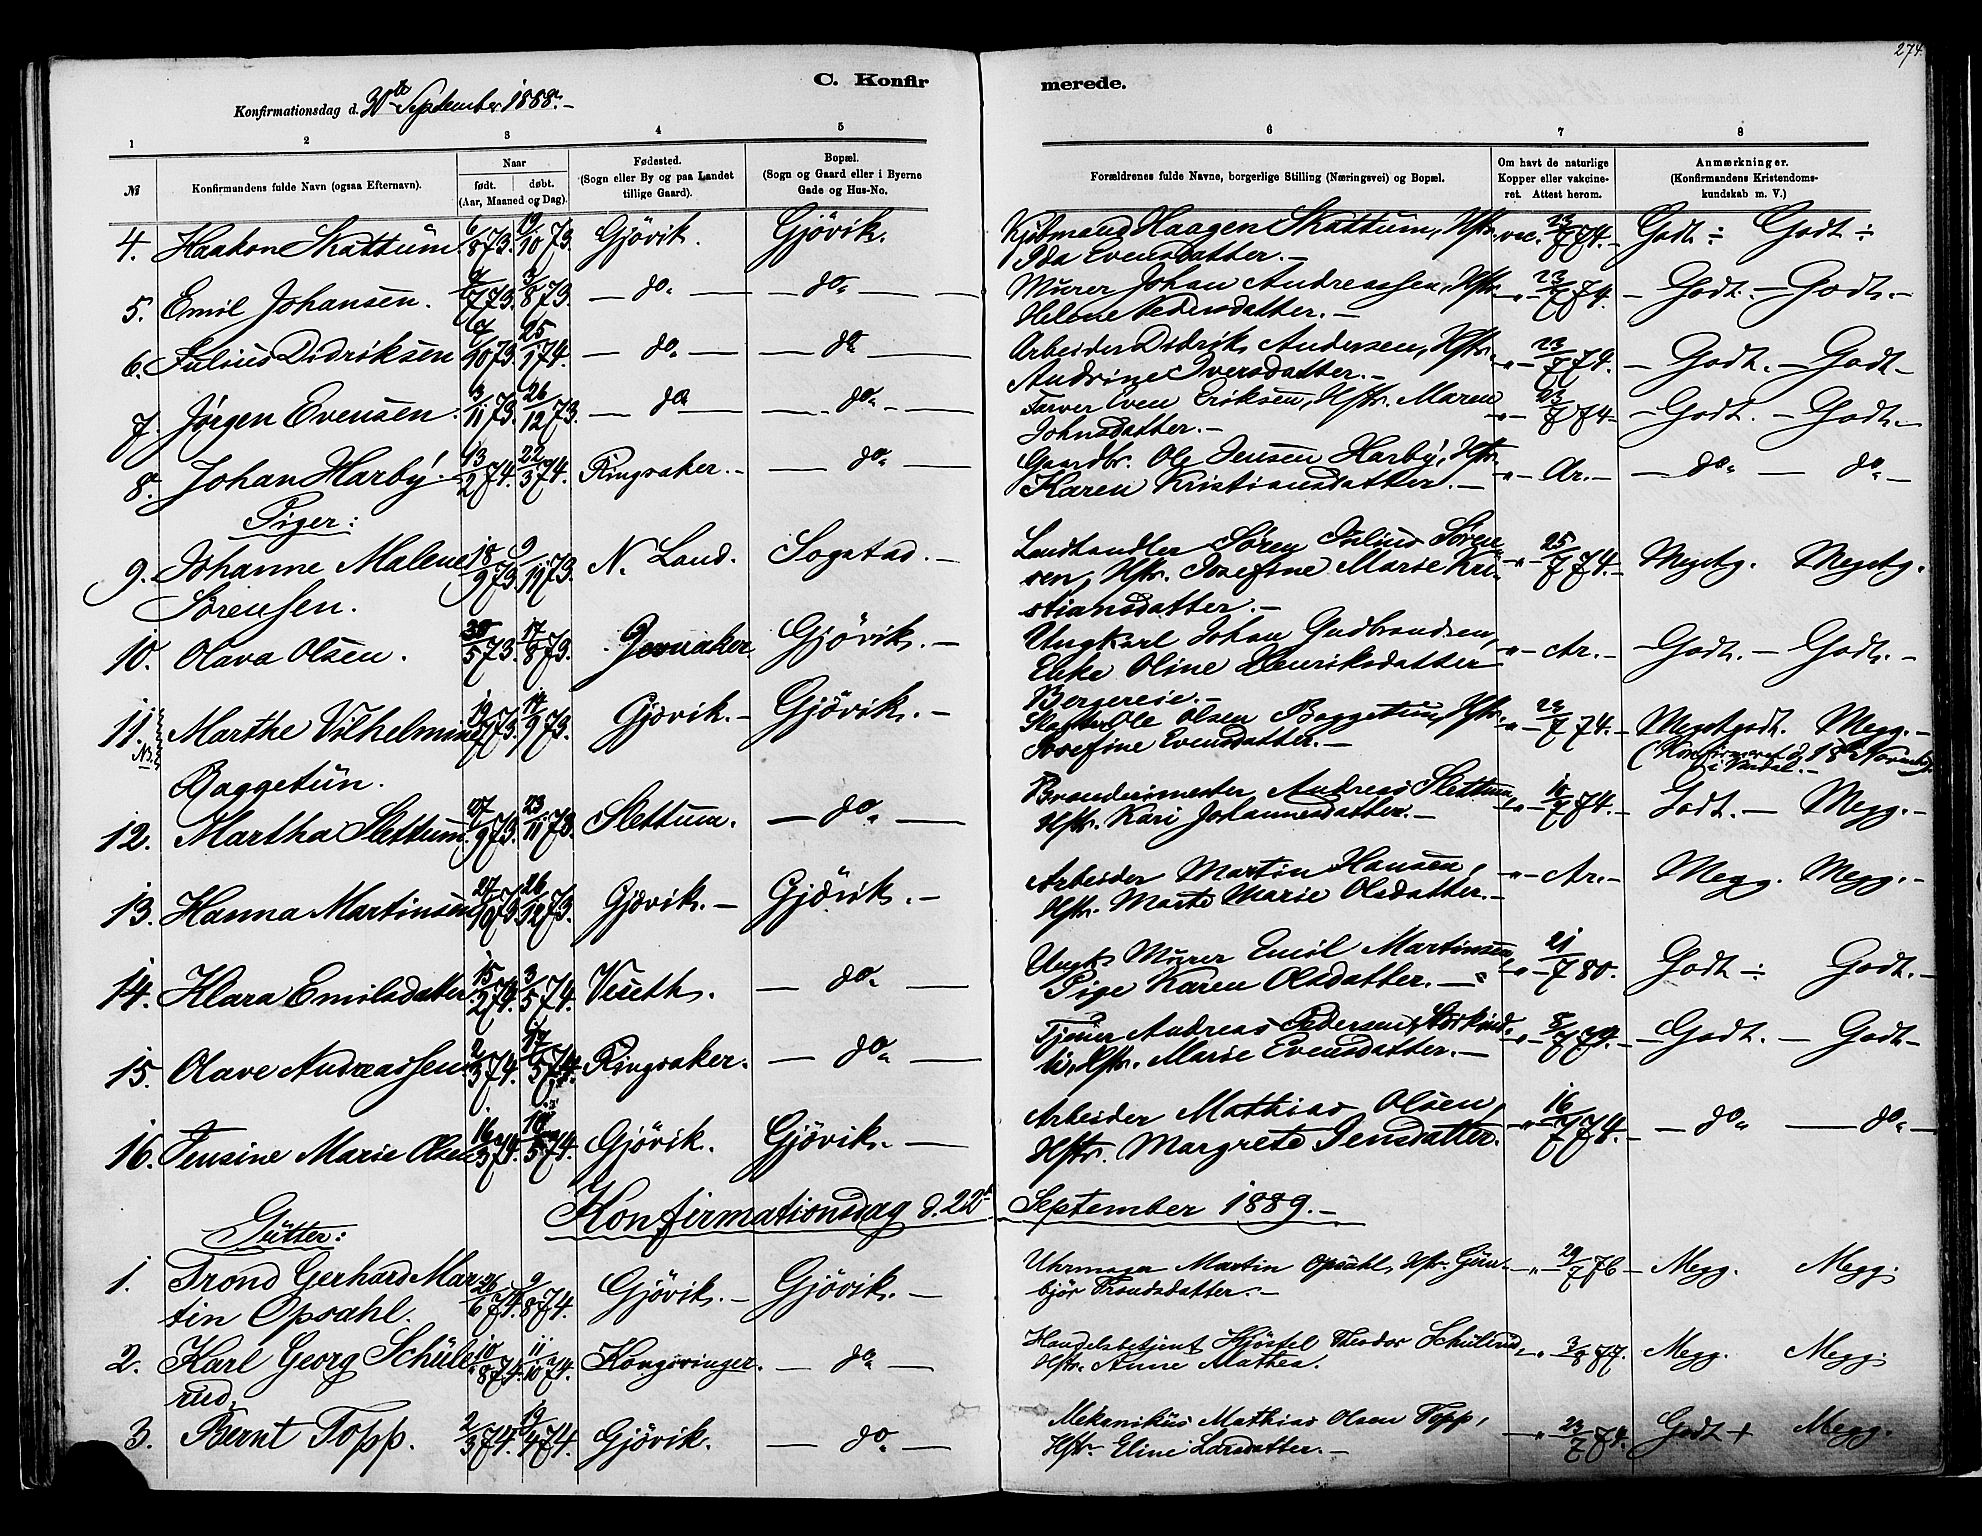 274.
C. Konfirmerede.
Konfirmationsdag d. 30te September 1888.-
1 2 3 4 5 6 7 8
№
Konfirmandens fulde Navn (ogsaa Efternavn).
Naar
født. døbt.
(Aar, Maaned og Dag).
Fødested.
(Sogn eller By og paa Landet
tillige Gaard).
Bopæl.
(Sogn og Gaard eller i Byerne
Gade og Hus-No.
Forældrenes fulde Navne, borgerlige Stilling (Næringsvei) og Bopæl.
Om havt de naturlige
Kopper eller vakcine-
ret. Attest herom.
Anmærkninger.
(Konfirmandens Kristendoms-
kundskab m. V.)
4. Haakon Skattum 6/8 73. 19/10 73. Gjövik. Gjövik. Kjöbmand Haagen Skattum, Hstr. vac. 23/7 74.- Godt ÷ Godt ÷
Ida Evensdatter.-
5. Emil Johansen. 9/7 73. 3/8 73. - do. - - do. - Murer Johan Andreassen, Hstr. -"- 23/7 74. - Godt. - Godt. -
Helene Pedersdatter. -
6. Julius Didriksen 7/10 73. 25/1 74. - do. - - do. - Arbeider Didrik Andersen, Hstr. -"- 23/7 74. - Godt. - Godt. -
Andrine Iversdatter. -
7. Jørgen Evensen. 3/11 73. 26/12 73. - do. - - do. - Farver Even Eriksen, Hstr. Maren -"- 23/7 74. - Godt. - Godt. -
Johnsdatter. -
8. Johan Harby. 13/2 74. 22/3 74. Ringsaker. - - do. - Gaardbr. Ole Jensen Harby, Hstr. -"- Ar. - - do. - do. -
Karen Kristiansdatter. -
Piger:
9. Johanne Malene 18/9 73. 9/11 73. N. Land. Sogstad. - Landhandler Sören Julius Sören- -"- 25/7 74. - Megetg. Megetg.
Sörensen. sen, Hstr. Josefine Marie Kri-
stiansdatter. -
10. Olava Olsen. 30/5 73. 17/8 73. Jevnaker Gjövik. - Ungkarl Johan Gudbrandsen, -"- Ar. - - Godt. - Godt. -
Enke Oline Henriksdatter
Bergereie. -
11. Marthe Vilhelmine 19/7 73. 14/9 73. Gjövik. - Gjövik. - Ole Olsen Baggetun, Hstr. -"- 23/7 74. - Megetgodt. Megg. -
NB. Josefine Evensdatter. - (Konfirmeret d. 18de Novemb.
i Vardal. -
Baggetun.
12. Martha Slettum. 27/9 73. 23/11 73. Slettum. - do. - Brandmester Andreas Slettum, -"- 10/7 74. - Godt. - Megg. -
Hstr. Kari Johannesdatter. -
13. Hanna Martinsen 27/10 73. 26/12 73. Gjövik. - Gjövik. - Arbeider Martin Hansen, -"- Ar. - Megg. Megg. -
Hstr. Marte Marie Olsdatter. -
14. Klara Emilsdatter 15/2 74. 3/5 74. Veseth. - do. - Ungk. Murer Emil Martinsen, -"- 21/7 80. Godt ÷ Godt. -
Pige Karen Olsdatter. -
15. Olave Andreassen 2/3 74. 17/5 74. Ringsaker. - do. - Tjener Andreas Pedersen -"- 8/7 79. - Godt. - Godt -
Hstr. Marie Evensdatter. -
16. Jensine Marie Olsen 16/3 74. 10/5 74. Gjövik. Gjövik. - Arbeider Mathias Olsen, -"- 16/7 78. - - do. - do. -
Hstr. Margrete Jensdatter.
Konfirmationsdag d. 22de September 1889. -
Gutter:
1. Trond Gerhard Mar- 26/6 74. 9/8 74. Gjövik. - Gjövik. - Uhrmager Martin Opsahl, Hstr. Gun- -"- 29/7 76 - Megg. Megg.
tin Opsahl. björ Trondsdatter. -
2. Karl Georg Schüle- 10/8 74. 11/10 74. Kongsvinger. - do. - Handelsbetjent Kjöstel Theodor Schülerud, -"- 3/8 77. Megg. Megg.
rud. Hstr. Anne Mathea.
3. Bernt Topp. 2/3 74. 19/4 74. Gjövik. - do. - Mekanikus Mathias Olsen Topp, -"- 23/7 74. - Godt + Megg.
Hstr. Eline Larsdatter. -